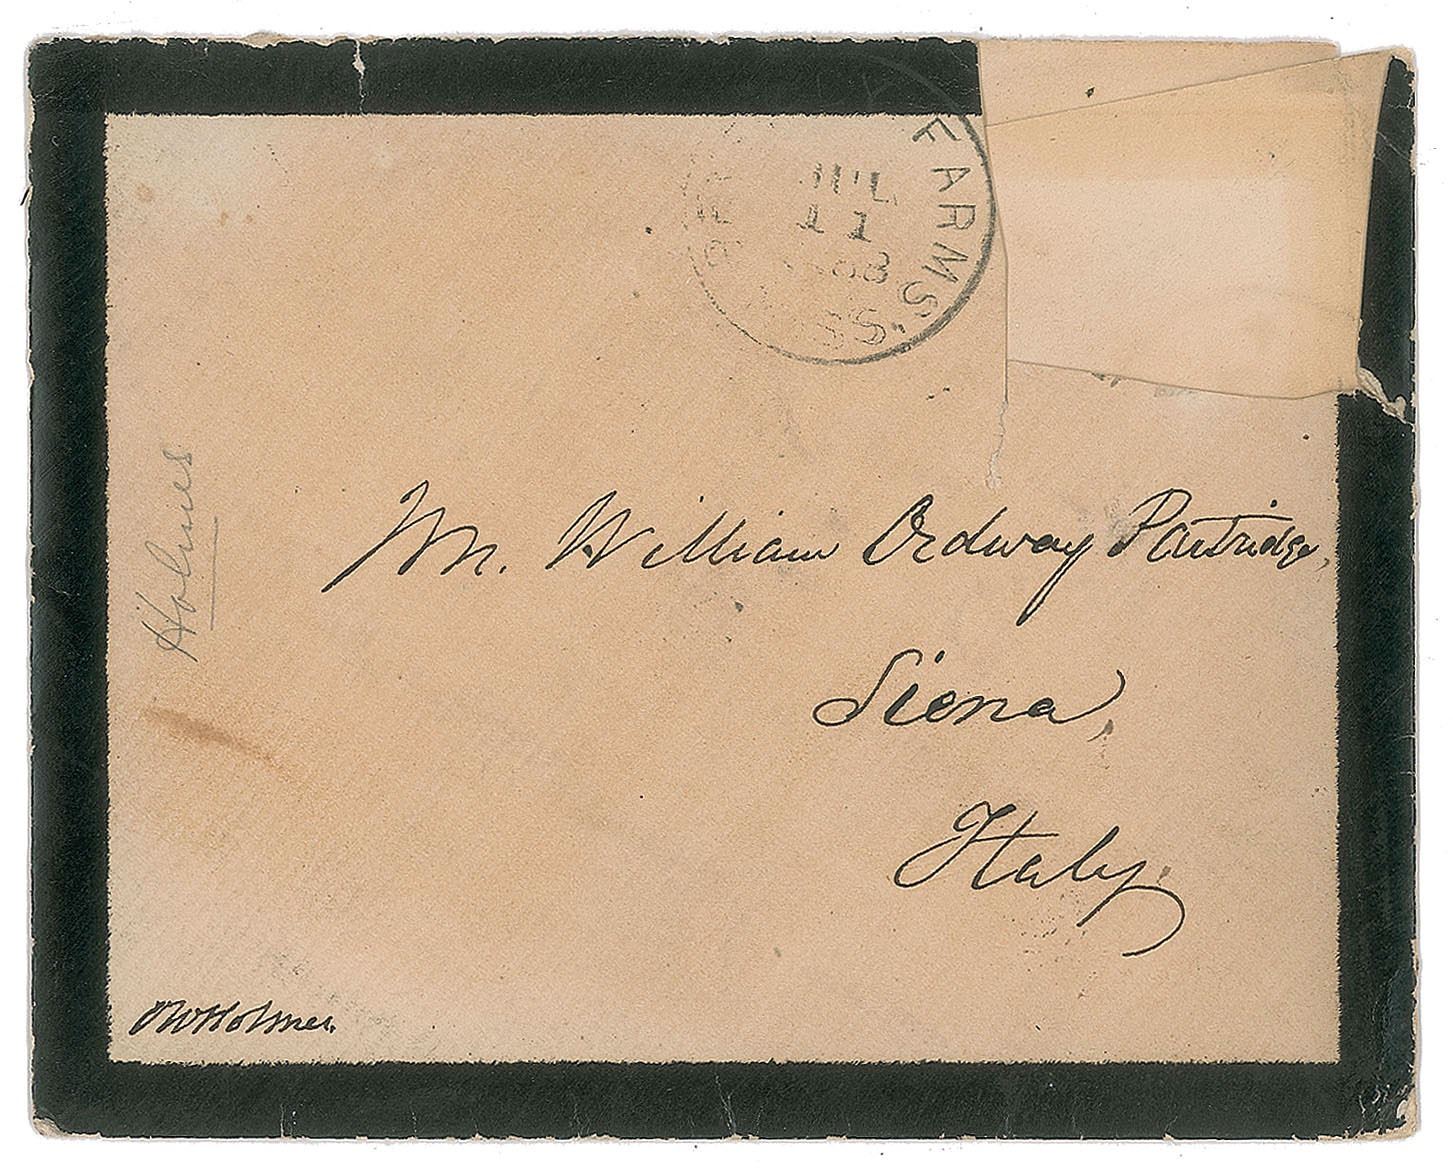 FARMS.
JUL
11
SS.
Holmes
Mr. William Ordway Partridge,
Siena,
Italy.
OWHolmes.